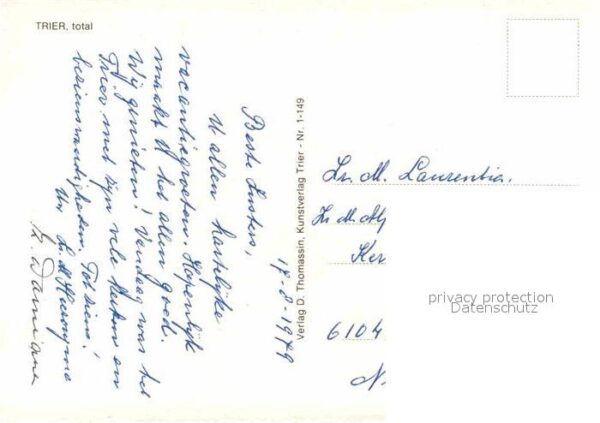 TRIER, total
17-8-1979
Beste Zusters,
U allen hartelijke
vacantiegroeten. Hopenlijk
maakt U het allen goed.
Wij genieten! Vandaag was het
Trier met zijn vele kerken en
bezienswaardigheden. Tot ziens!
Uw Zr. M. Hieronyma
Zr. Damiane
Verlag D. Thomassin, Kunstverlag Trier - Nr. 1-149
Zr. M. Laurentia.
Zr. M.
Ker
6104
N.
privacy protection
Datenschutz